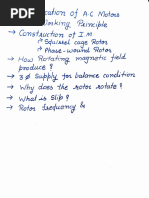 cation of A·C Motors
rking Principle
→ Construction of I.M
↳ Squirrel cage Rotor
↳ Phase-wound Rotor
→ How Rotating magnetic field
produce ?
→ 3Ø Supply for balance condition
→ Why does the rotor rotate ?
→ What is Slip ?
→ Rotor frequency &